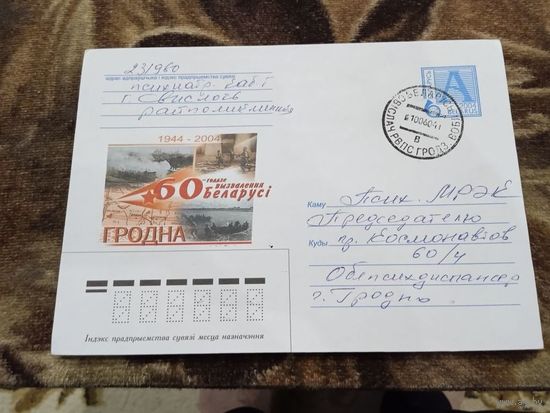 адрас адпраўшчыка і індэкс прадпрыемства сувязі
231960
психиатр. каб т
г. Свислочь
райполиклиника
1944 - 2004
60
-годдзе
вызвалення
Беларусі
ГРОДНА
БЕЛАРУСЬ
А
100604
В
Каму Псих. МРЭК
Председателю
Куды пр. Космонавтов
60/4
Облпсихдиспансер
г. Гродно
Індэкс прадпрыемства сувязі месца назначэння
ay.by